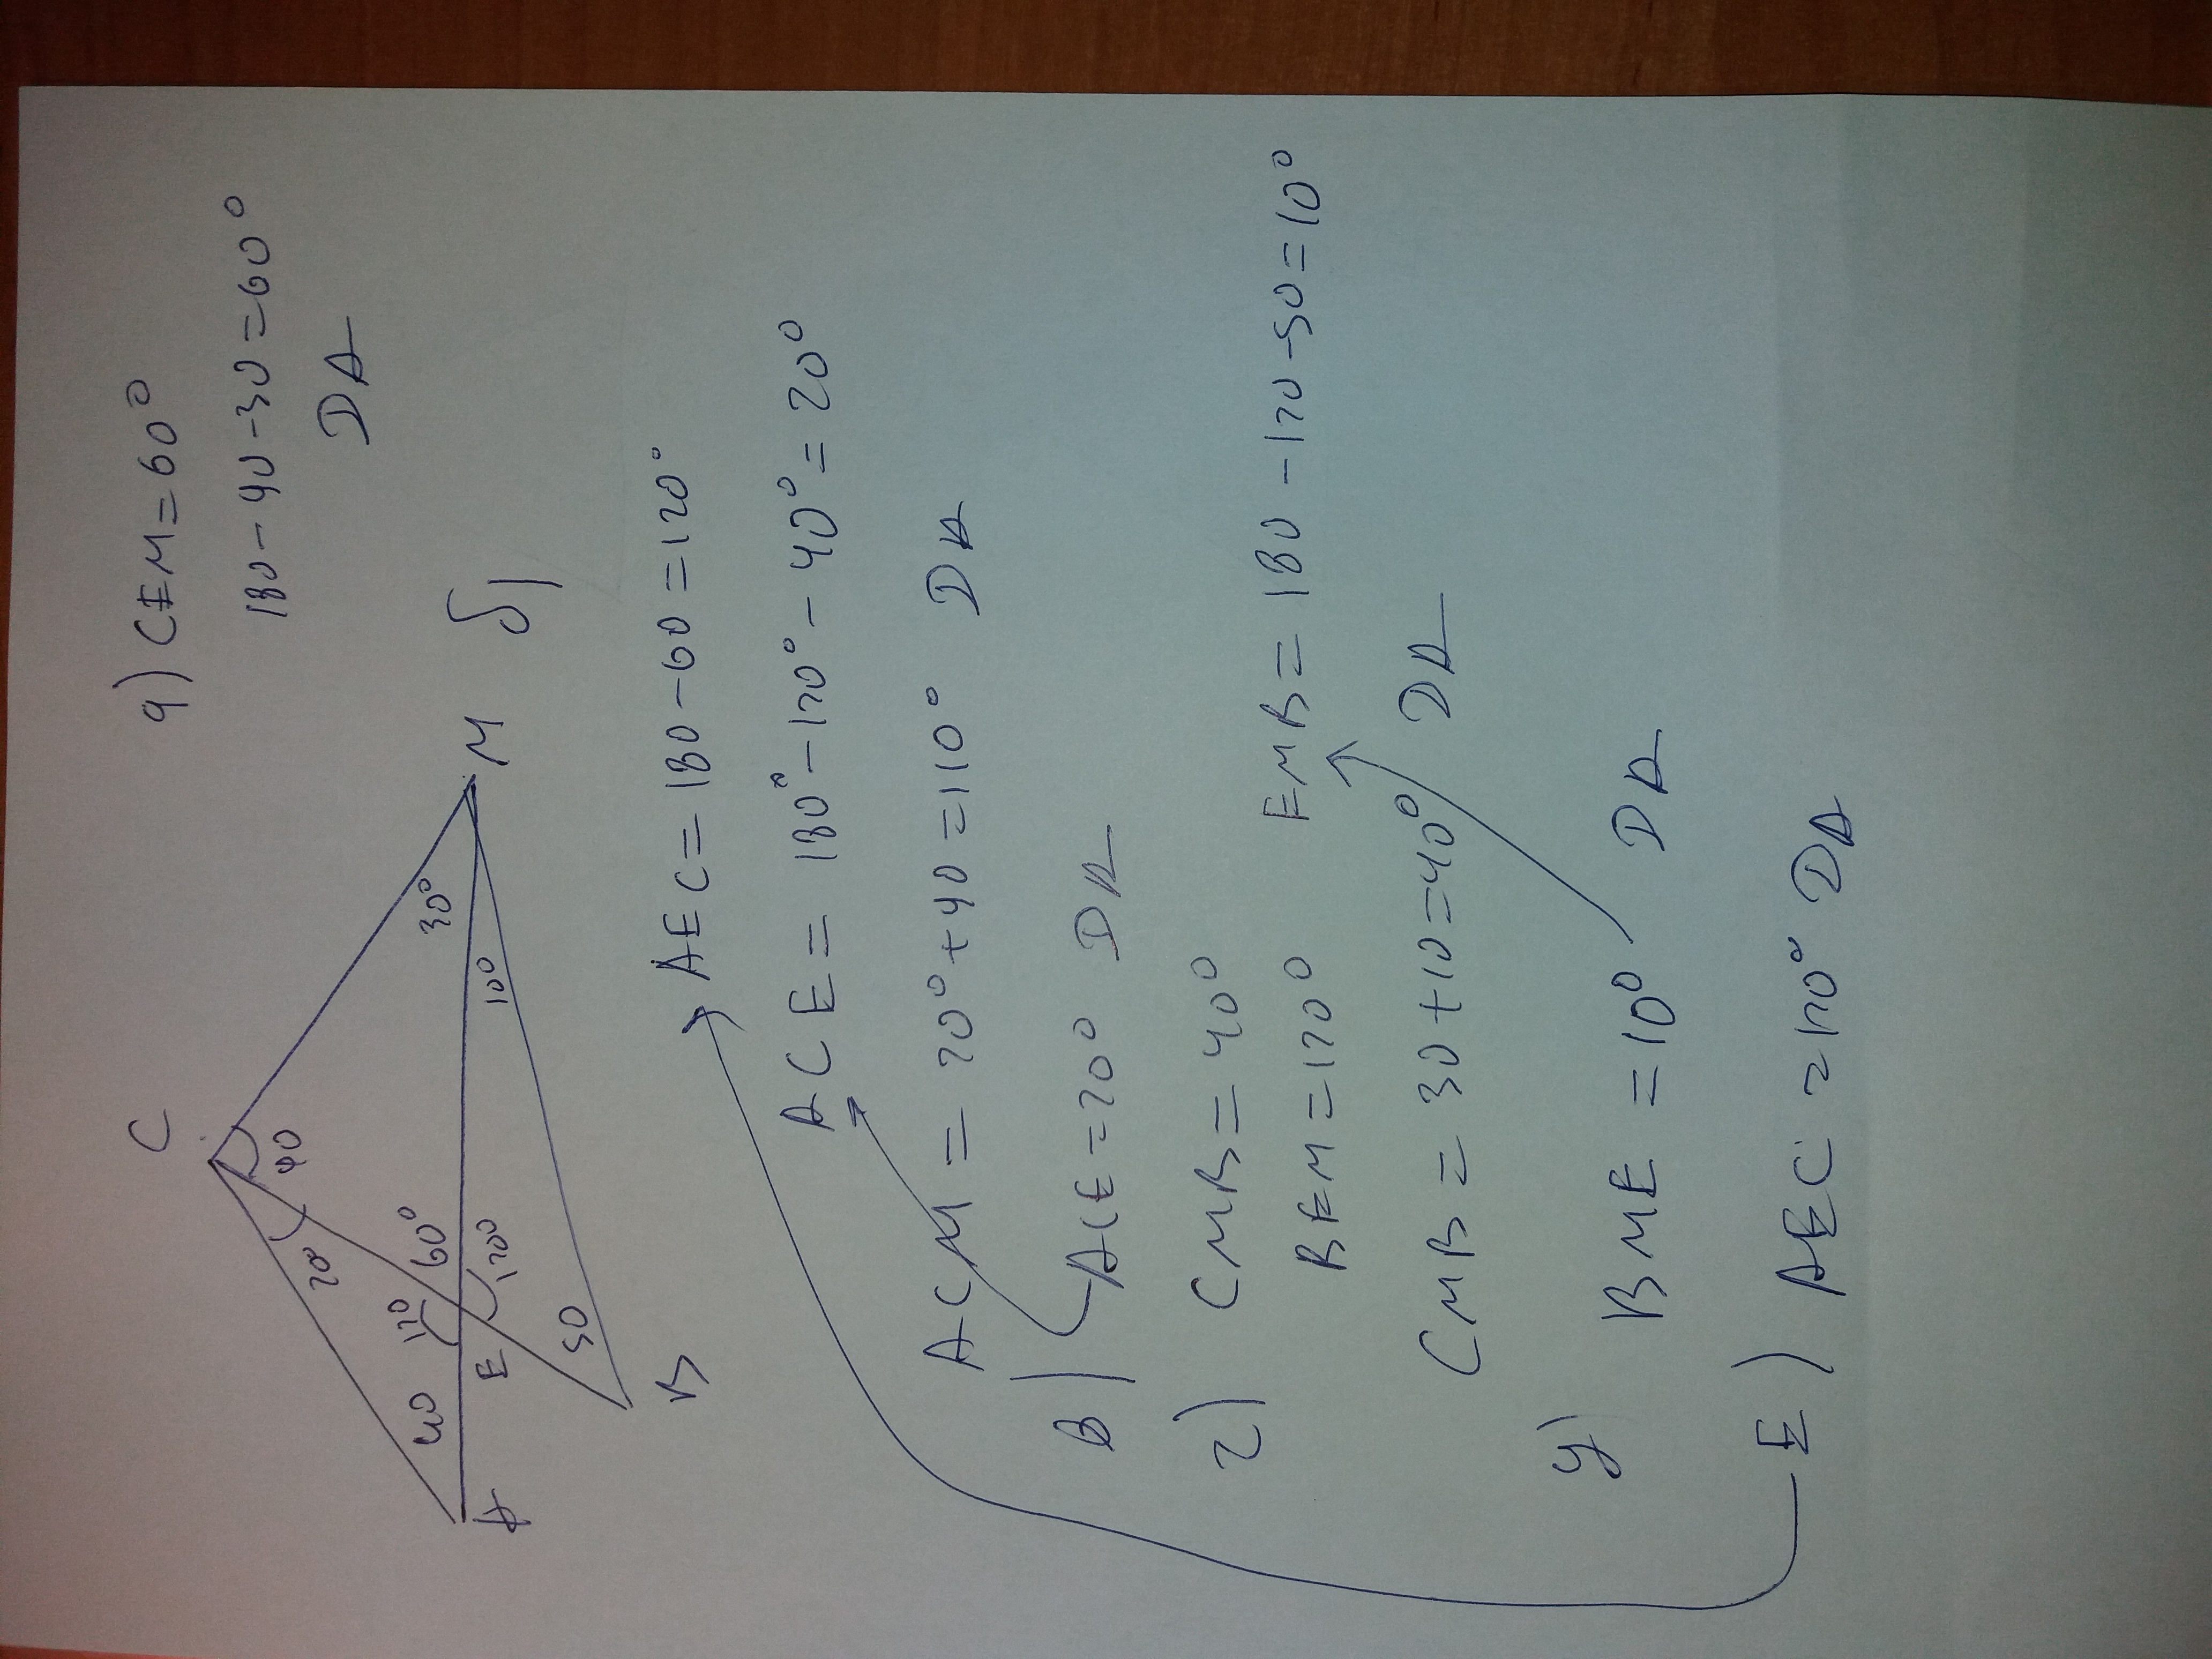 C
а) CEM=60°
180-90-30=60°
DA
20
90
40
120
60°
30°
A
E
120
10°
M
50
B
б)
AEC=180-60=120°
ACE=180°-120°-40°=20°
ACM=20°+90=110° DA
в) ACE=20° DA
г) CMB=40°
BEM=120° EMB=180-120-50=10°
CMB=30+10=40° DA
g) BME=10° DA
E) AEC=120° DA